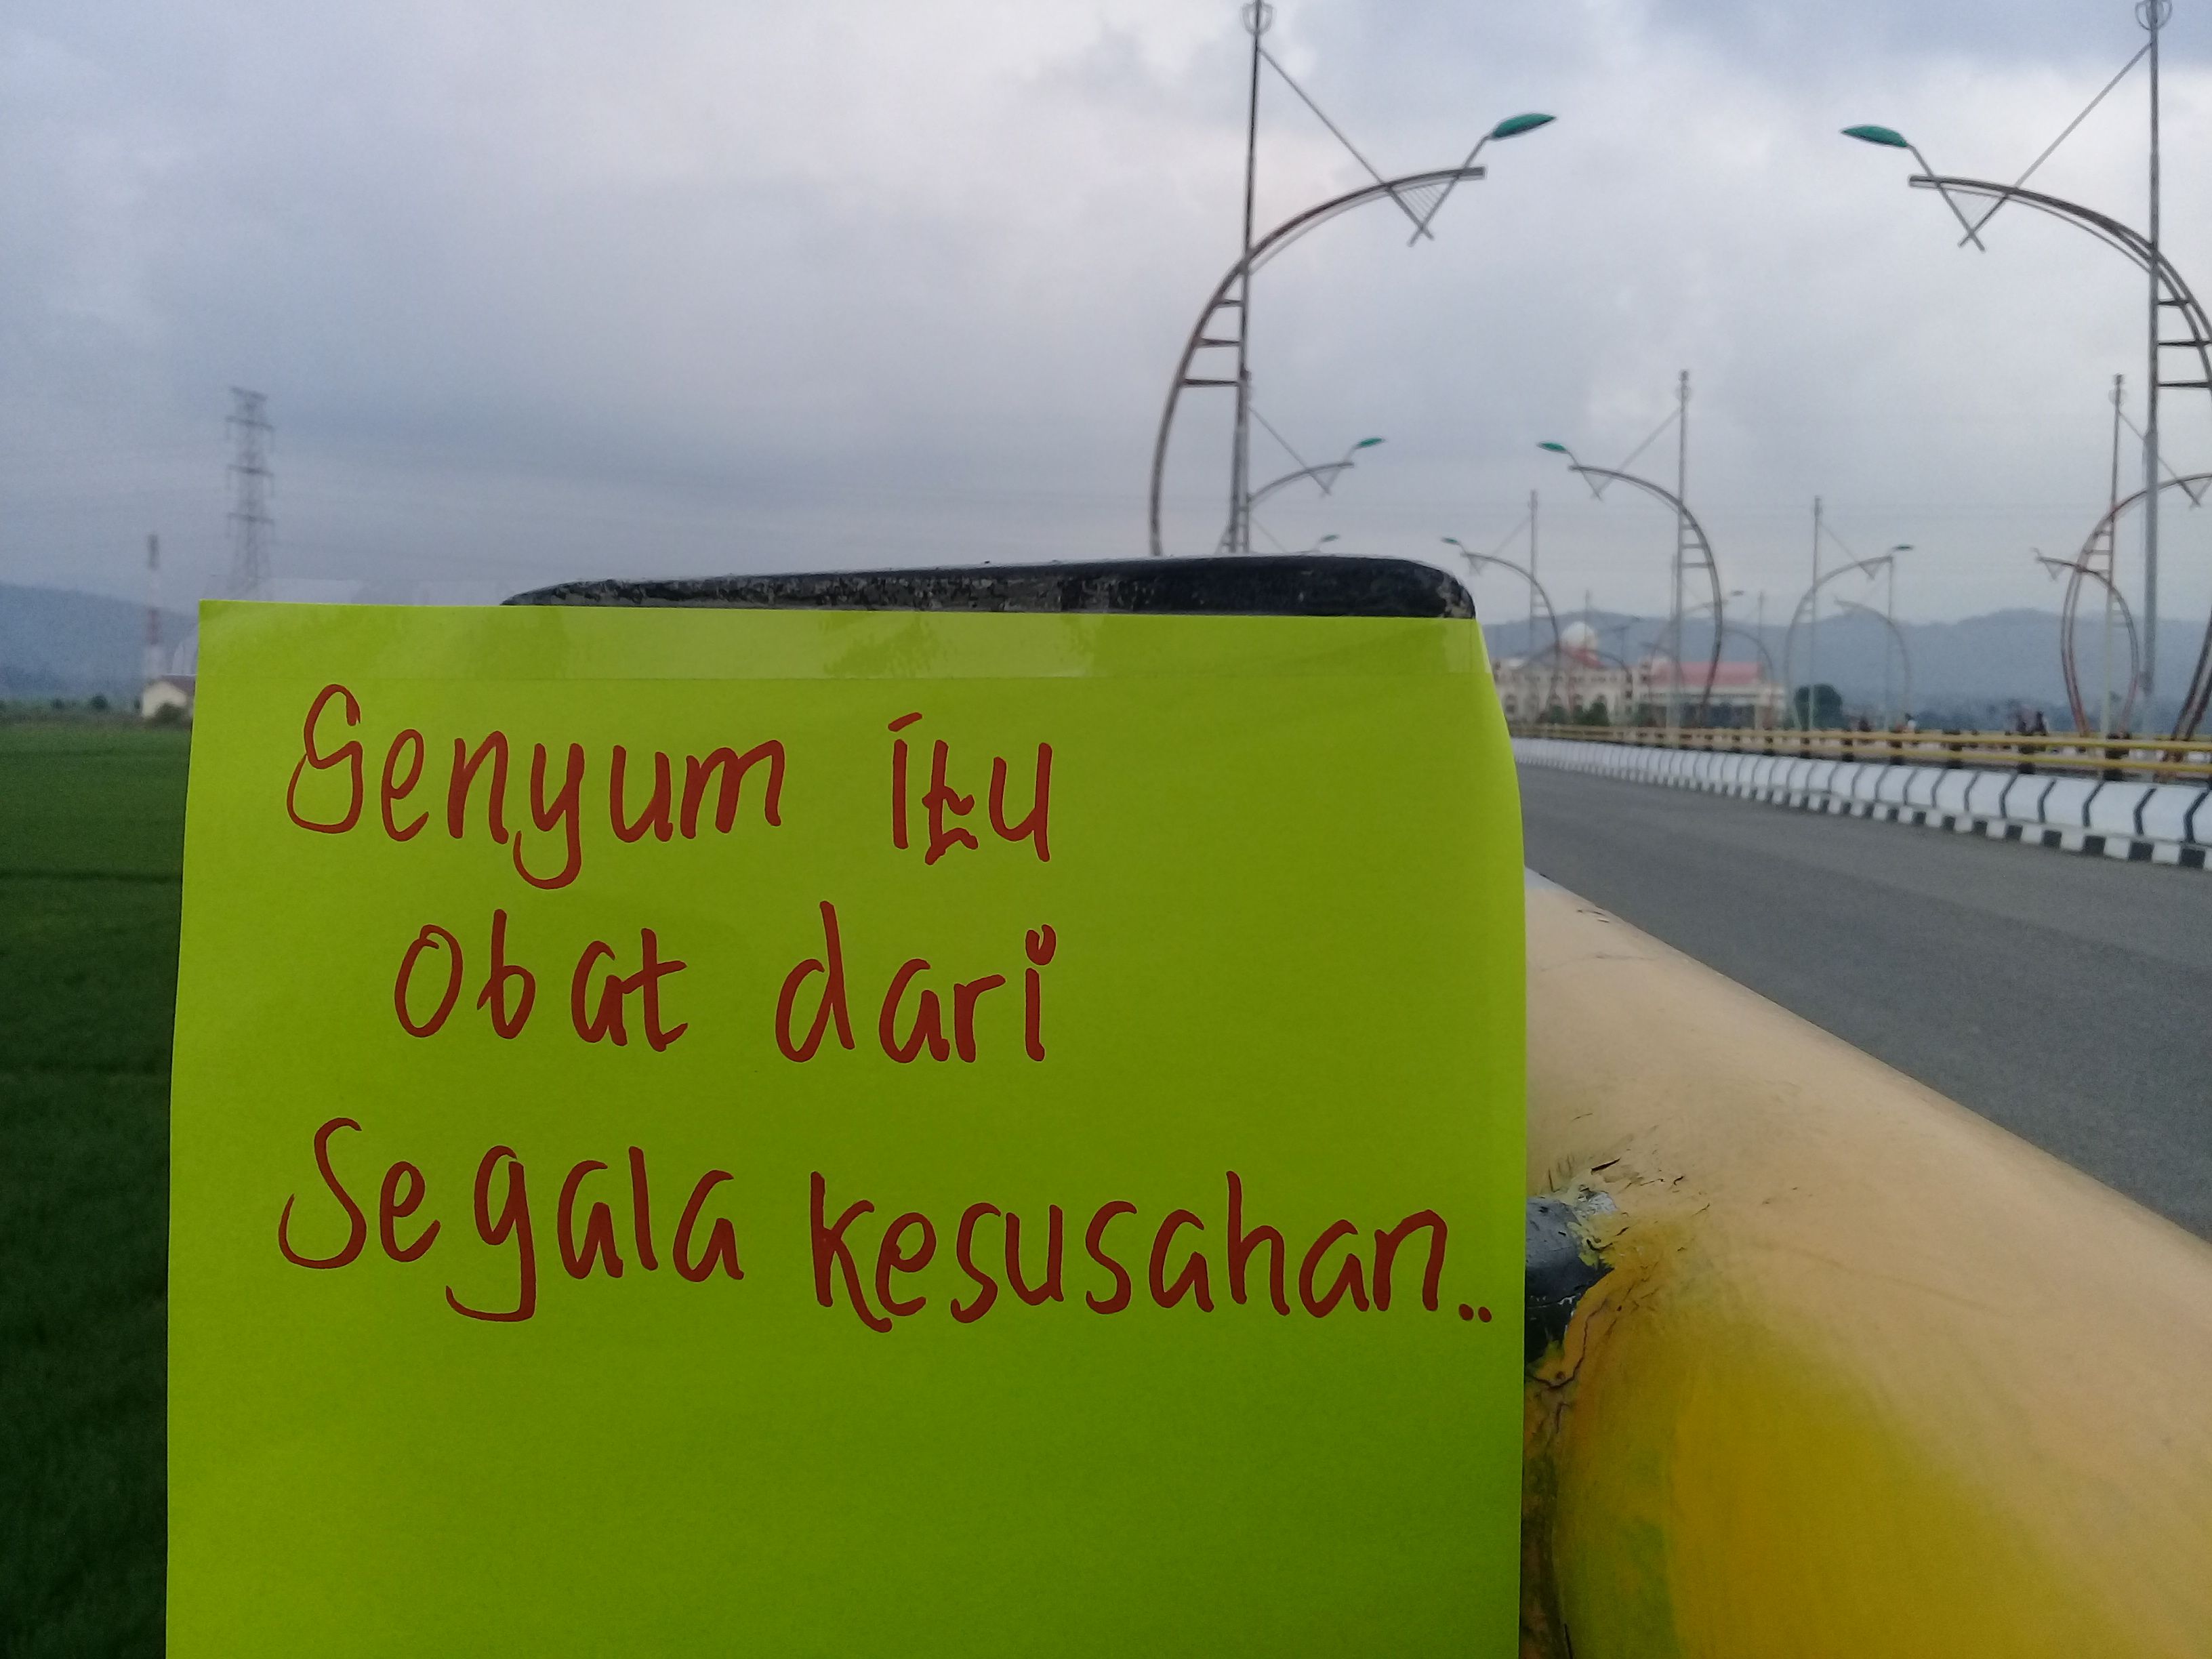 Senyum itu
obat dari
Segala kesusahan..